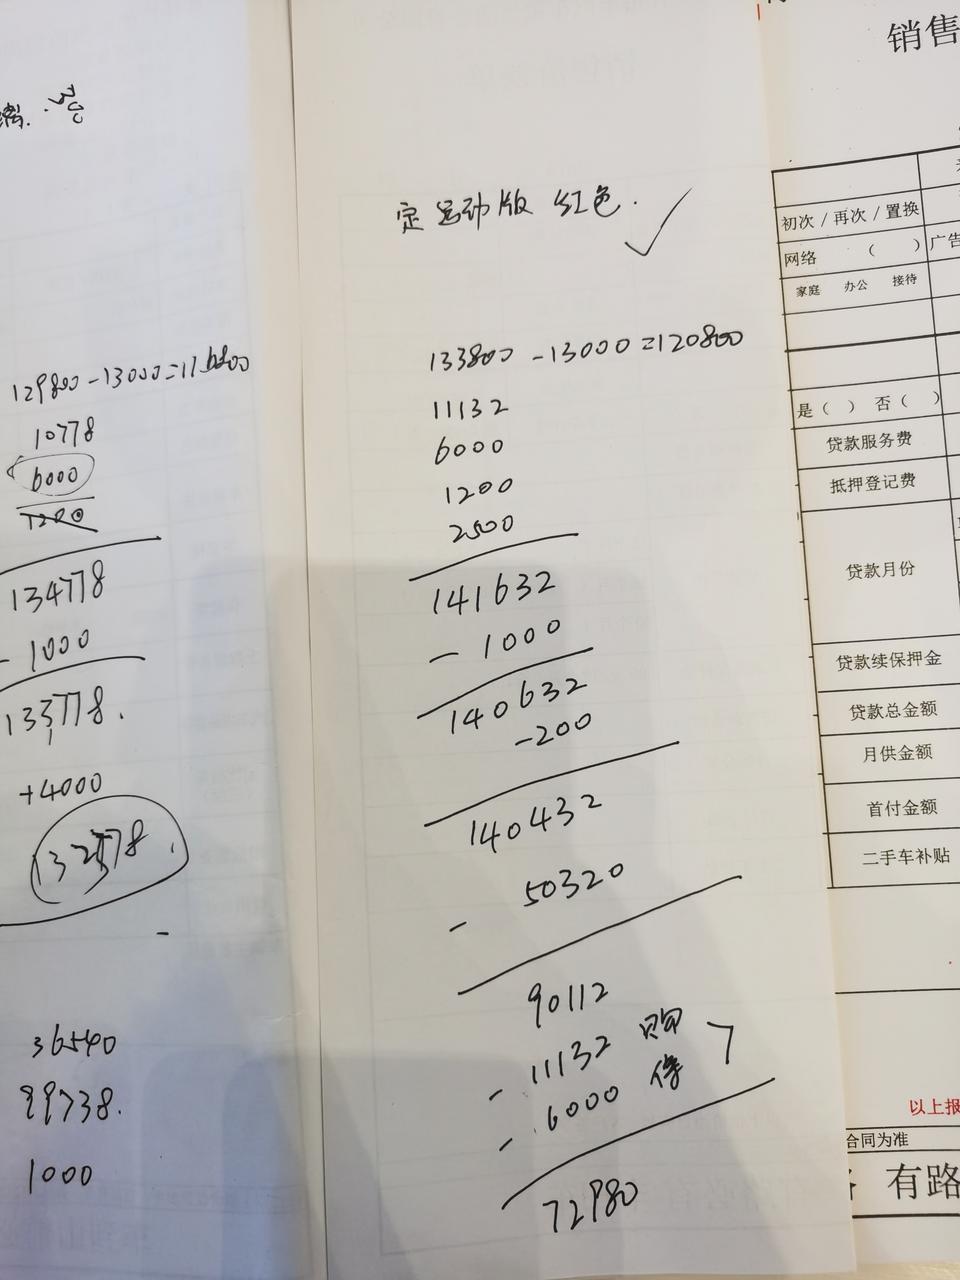 300
129800-13000=116800
10778
6000
1200
134778
- 1000
133778.
+4000
36540
99738.
1000
定运动版 红色.
133800-13000=120800
11132
6000
1200
2500
141632
- 1000
140632
-200
140432
- 50320
90112
- 11132 购
- 6000 保
72980
销售
初次/再次/置换
网络 ( ) 广告
家庭 办公 接待
是( ) 否( )
贷款服务费
抵押登记费
贷款月份
贷款续保押金
贷款总金额
月供金额
首付金额
二手车补贴
以上报
合同为准
有路